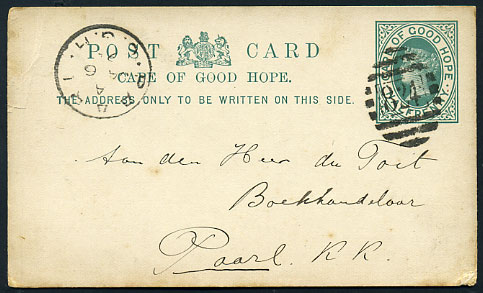 POST CARD
CAPE OF GOOD HOPE.
THE ADDRESS ONLY TO BE WRITTEN ON THIS SIDE.
OF GOOD HOPE
Aan den Heer du Toit
Boekhandelaar
Paarl. K. K.